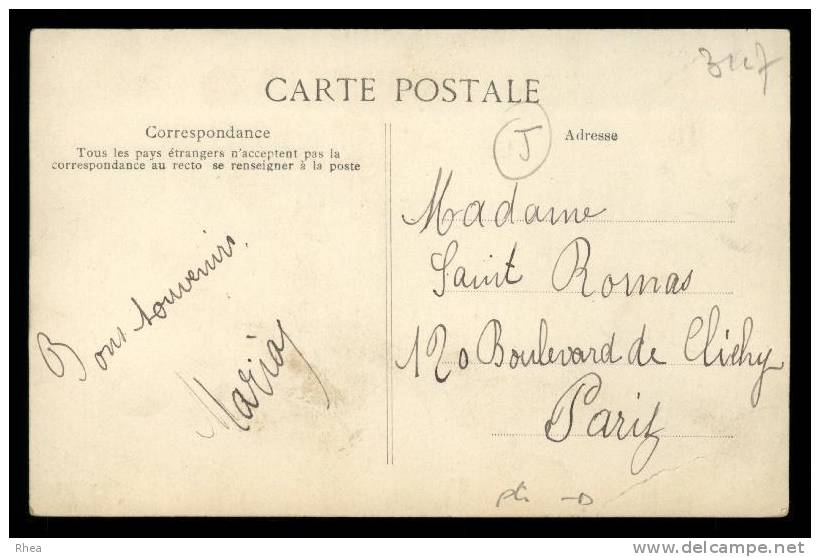 3117
CARTE POSTALE
Correspondance
Tous les pays étrangers n'acceptent pas la
correspondance au recto se renseigner à la poste
Bons souvenirs.
Maria
J
Adresse
Madame
Saint Romas
120 Boulevard de Clichy
Paris
Rhea
www.delcampe.net